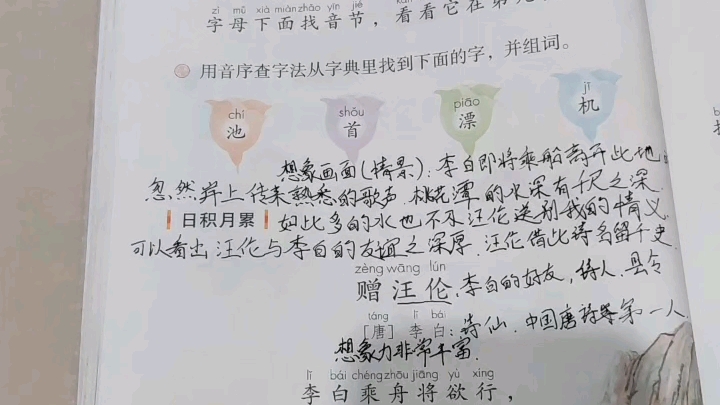 zì mǔ xià miàn zhǎo yīn jié kàn
字母下面找音节，看看它在第几
用音序查字法从字典里找到下面的字，并组词。
chí shǒu piāo jī
池 首 漂 机
想象画面(情景)：李白即将乘船离开此地
忽然岸上传来熟悉的歌声.桃花潭的水深有千尺之深.
日积月累 如此多的水也不及汪伦送别我的情义
可以看出汪伦与李白的友谊之深厚.汪伦借此诗名留千史.
zèng wāng lún
赠汪伦：李白的好友，诗人，县令
táng lǐ bái
[唐] 李白：诗仙.中国唐诗第一人.
想象力非常丰富.
lǐ bái chéng zhōu jiāng yù xíng
李白乘舟将欲行，